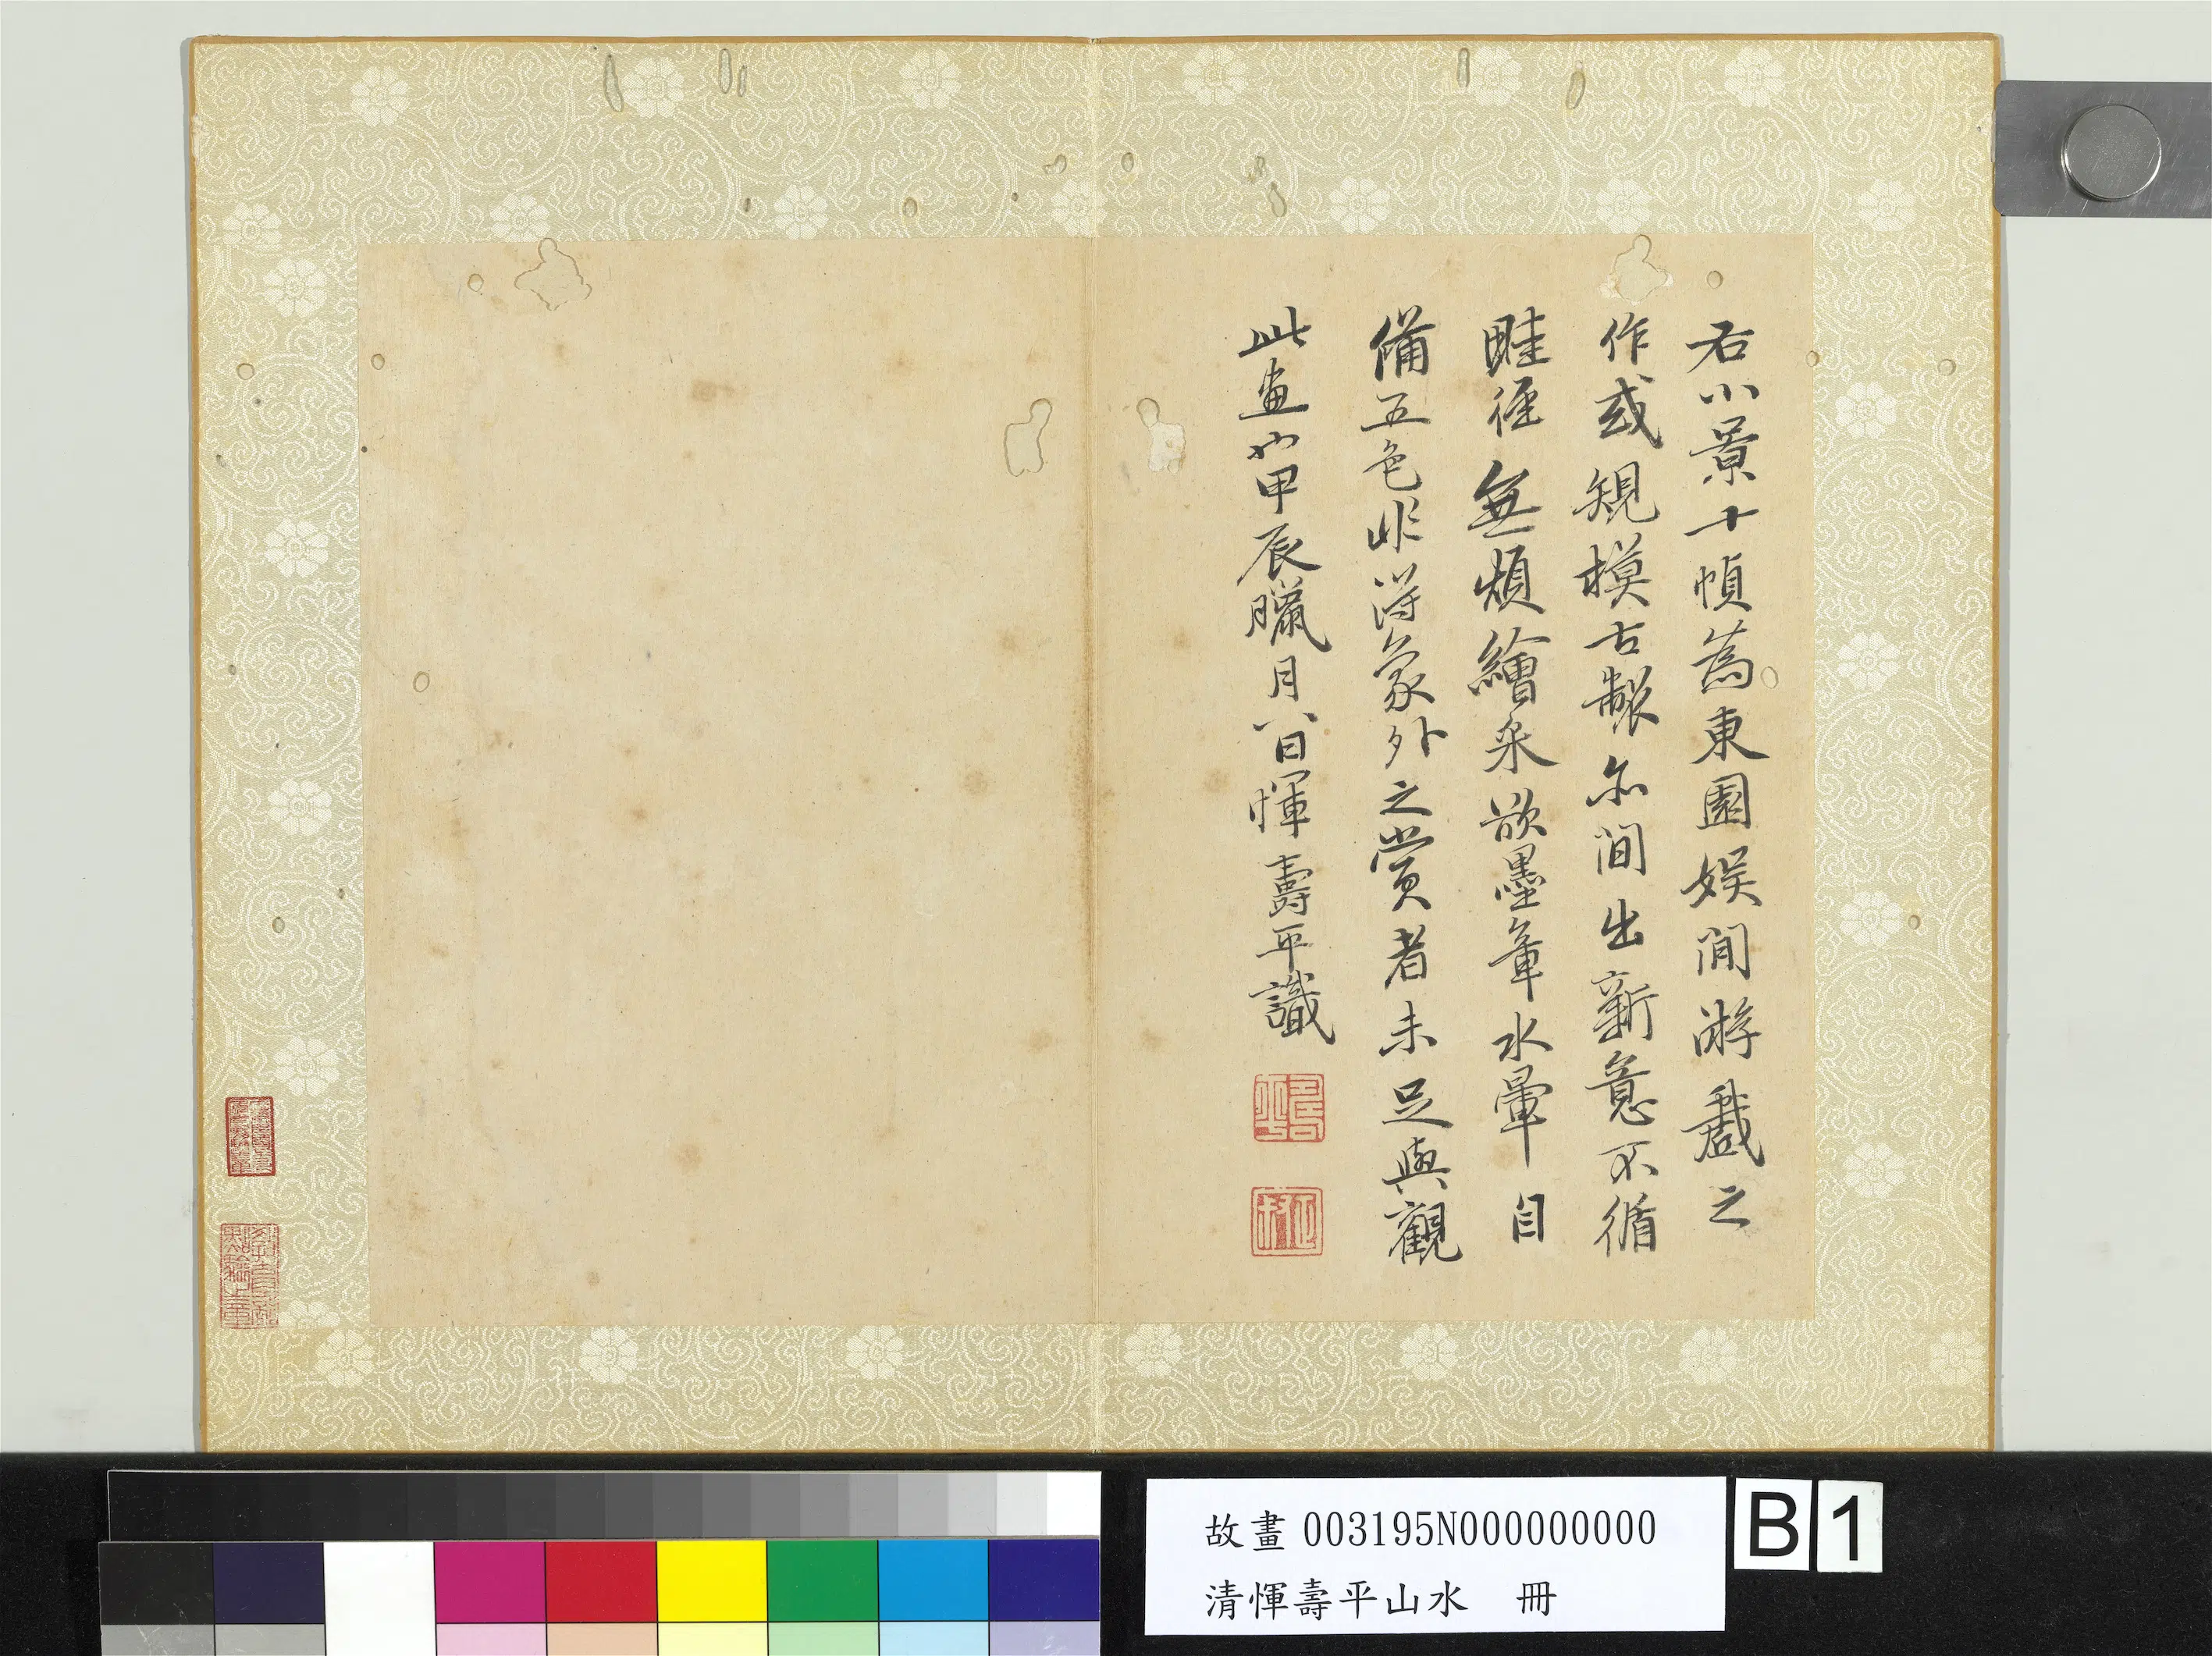 右小景十幀為東園娛閒游戲之
作或規模古製亦間出新意不循
畦徑無煩繪采欲墨章水暈自
備五色非得象外之賞者未足與觀
此畫也甲辰臘月八日惲壽平識
故畫 003195N000000000
清惲壽平山水 冊
B1